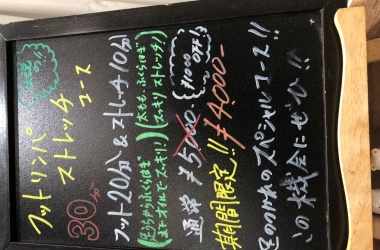 フットリンパ
ストレッチ
コース
30分
フット20分&ストレッチ10分
(足うらからふくらはぎまでオイルでスッキリ!)
(太もも、ふくらはぎスッキリストレッチ!)
通常 ¥5,000
¥1000 OFF!
期間限定!! ¥4,000-
足のつかれのスペシャルコース!!
の機会にぜひ!!